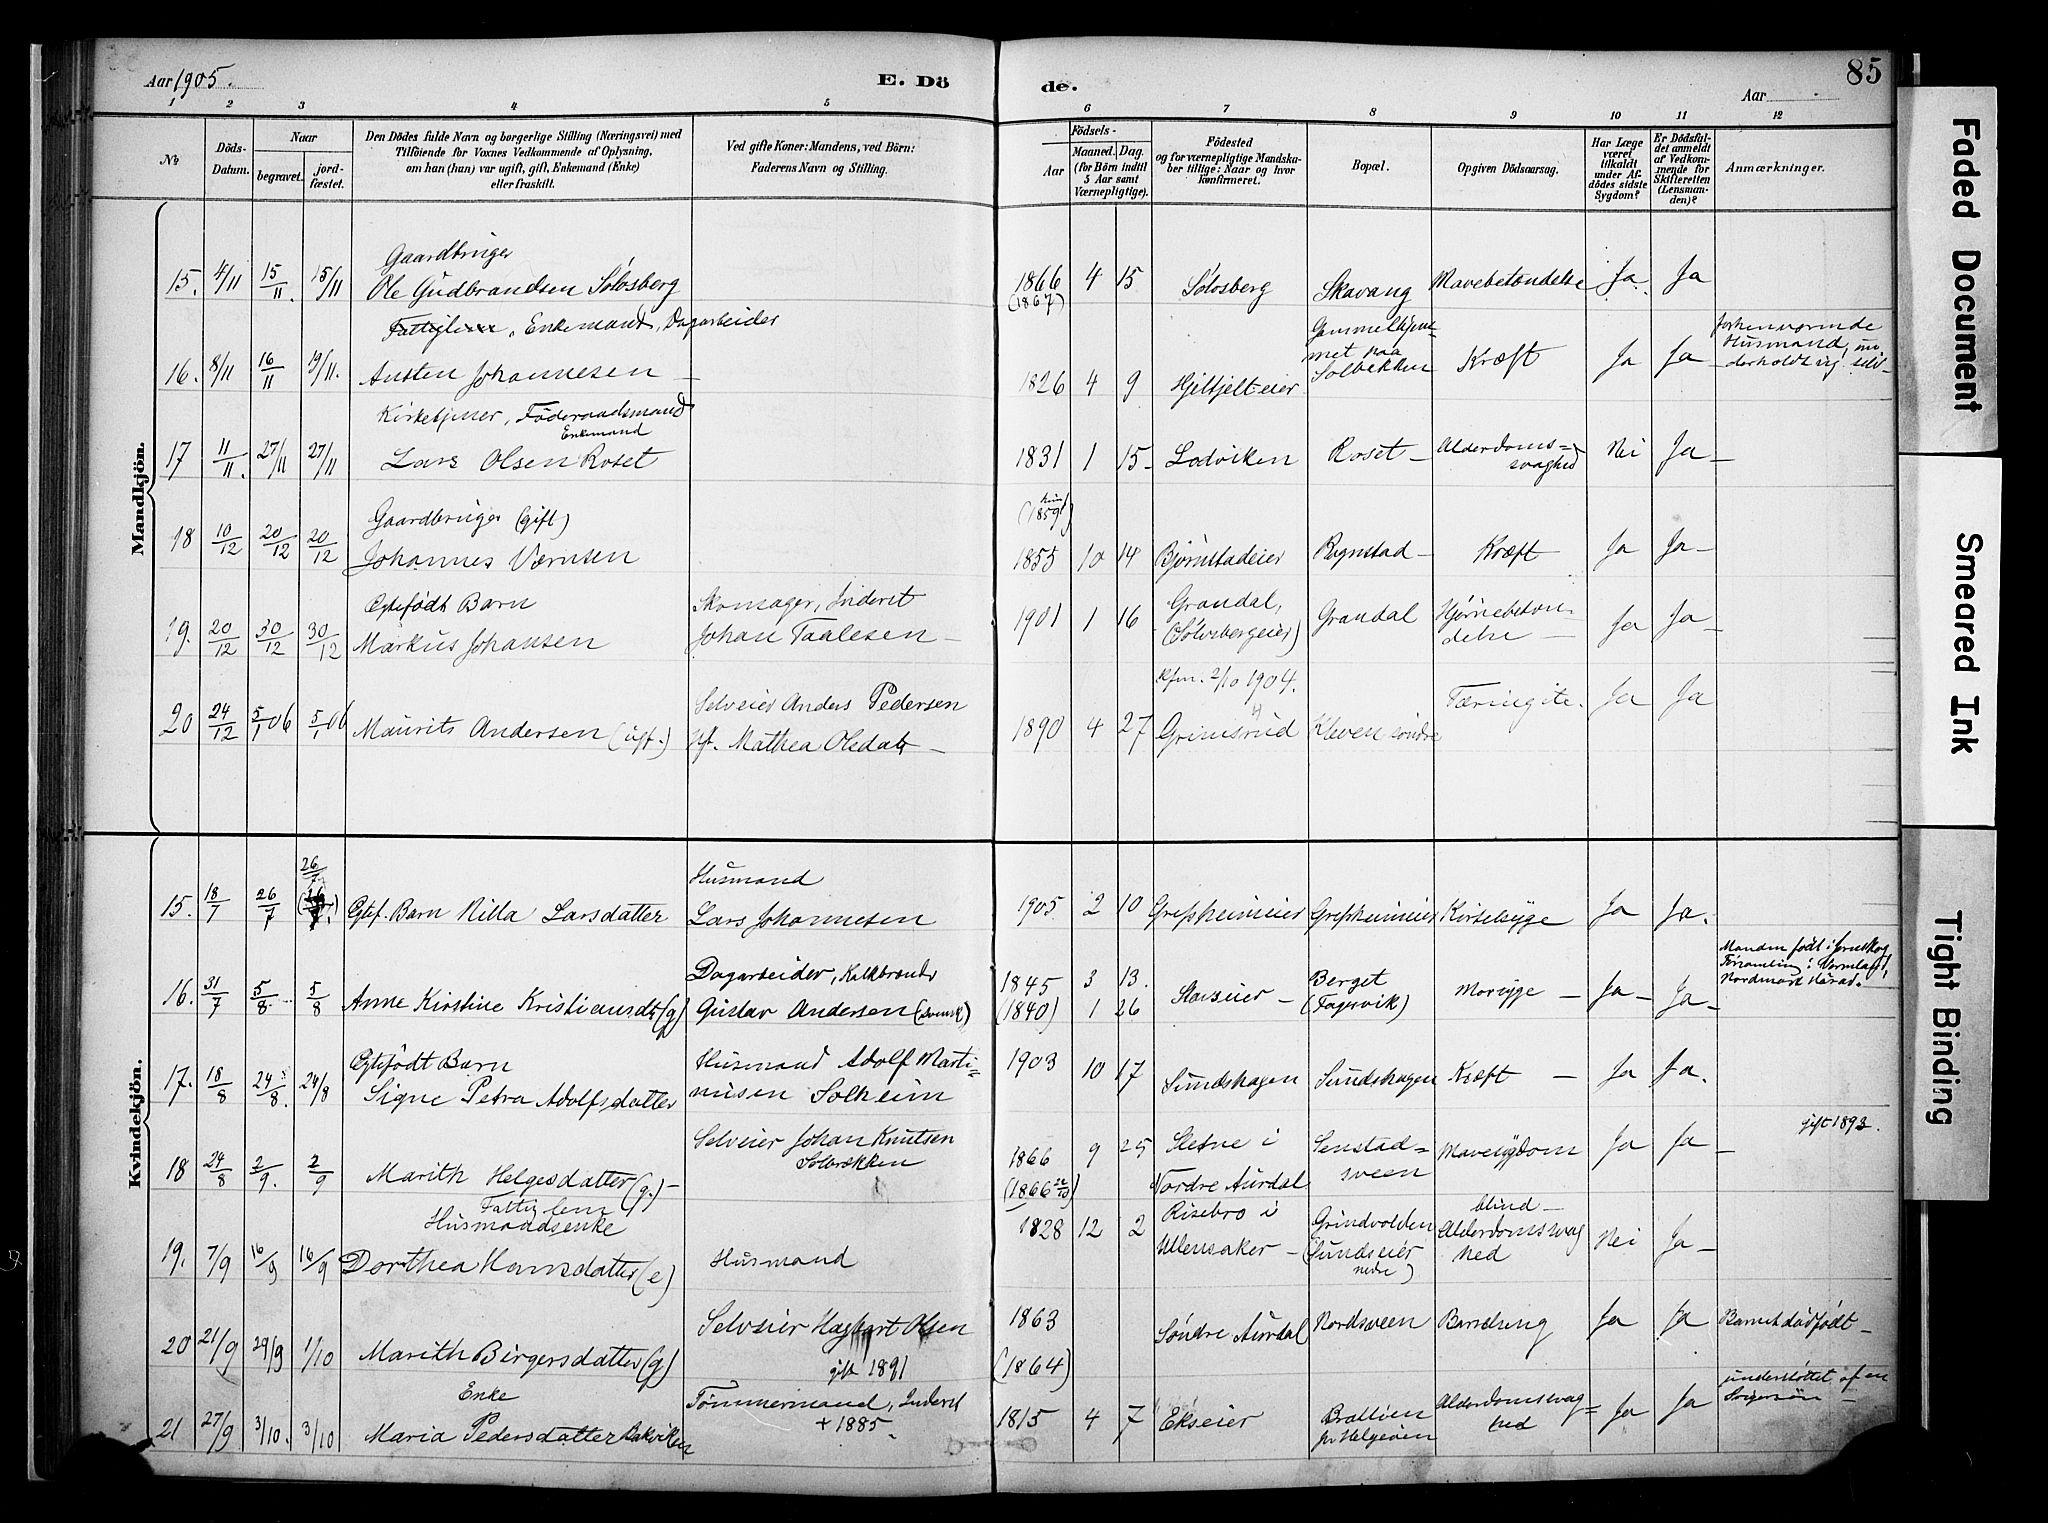 Aar 1905.
E. Döde.
Aar
85
1 2 3 4 5 6 7 8 9 10 11 12
No
Döds-Datum.
Naar
begravet.
jord-fæstet.
Den Dödes fulde Navn og borgerlige Stilling (Næringsvei) med
Tilföiende for Voxnes Vedkommende af Oplysning,
om han (hun) var ugift, gift, Enkemand (Enke)
eller fraskilt.
Ved gifte Koner: Mandens, ved Börn:
Faderens Navn og Stilling.
Födsels-
Aar
Maaned. Dag.
(for Börn indtil
5 Aar samt
Værnepligtige).
Födested
og for værnepligtige Mandska-
ber tillige: Naar og hvor
konfirmeret.
Bopæl.
Opgiven Dödsaarsag.
Har Læge
været
tilkaldt
under Af-
dödes sidste
Sygdom?
Er Dödsfal-
det anmeldt
af Vedkom-
mende for
Skifteretten
(Lensman-
den)?
Anmærkninger.
Mandkjön.
Gaardbruger
15. 4/11 15/11. 15/11 Ole Gudbrandsen Sølosberg 1866 4 15 Sølosberg Skavang Mavebetændelse Ja Ja
(1867)
Fattiglem, Enkemand, Dagarbeider
Gammelhjem-
met paa
Solbekken
forhenværende
Husmand, un-
derholdt sig selv-
16. 8/11 16/11 19/11. Austen Johannesen - 1826 4 9 Hjeltjelteier Kræft Ja Ja
Kirketjener, Föderaadsmand
Enkemand
17 11/11. 27/11 27/11 Lars Olsen Roset 1831 1 15 Lodviken Roset - Alderdoms=
svaghed Nei Ja -
Gaardbruger (gift)
(1859)
18 10/12 20/12 20/12 Johannes Værnsen 1855 10 14 Bjørnstadeier Rognstad - Kræft Ja Ja -
Egtefödt Barn
Skomager, Inderst
Grandal,
19. 20/12 30/12 30/12 Markus Johansen Johan Taalesen - 1901 1 16 (Sølvsbergeier) Grandal Hjernebeton-
delse Ja Ja -
Kfm. 2/10 1904.
Selveier Anders Pedersen
20 24/12 5/1 06 5/1 06 Maurits Andersen (uft.) Mathea Olsdatr - 1890 4 27 Grimsrud Kleven söndre Tæringite. Ja Ja
Kvindekjön.
26/7
Husmand
15. 18/7 26/7 Egtef. Barn Nilla Larsdatter Lars Johannesen 1905 2 10 Grefsheimeier Grefsheimeier Kirtelsyge Ja Ja.
Dagarbeider, Kalkbrænder
Manden født i
Nordmark Härad.
16. 31/7 5/8 5/8 Anne Kirstine Kristiansdtr (g) Gustav Andersen (svensk) 1845 3 13. Berget
(Fagervik) Ja - Ja -
(1840) 1 26
Egtefödt Barn
Husmand Adolf Marti=
nusen Solheim
17. 18/8 24/8. 24/8 Signe Petra Adolfsdatter 1903 10 17 Sundshagen Sundshagen Kræft - Ja Ja.
Selveier Johan Knutsen
Solbrækken
gift 1893.
18 24/8 2/9. 2/9 Marith Helgesdatter (g.) - 1866 9 25 Sletne i
Nordre Aurdal Senstad=
sveen Mavesygdom Ja Ja -
Fattiglem
Husmandsenke
19. 7/9 16/9 16/9 Dorthea Hansdatter (e) Husmand 1828 12 2 Risebro i
Ullensaker - Grindvolden
(Sundseier
nedre) blind -
Alderdomssvag
hed Nei Ja -
Selveier Hagbart Olsen
20 21/9 29/9 1/10 Marith Birgersdatter (g) gift 1891 1863
(1864) Søndre Aurdal Nordsveen Barselseng Ja Ja Barnet dødfødt -
Enke
Tømmermand, Inderst
+ 1885.
21 27/9 3/10. 3/10 Maria Pedersdatter 1815 4 7 Ekseier Alderdomssvag=
hed Ja Ja understøttet af en
Faded Document
Smeared Ink
Tight Binding